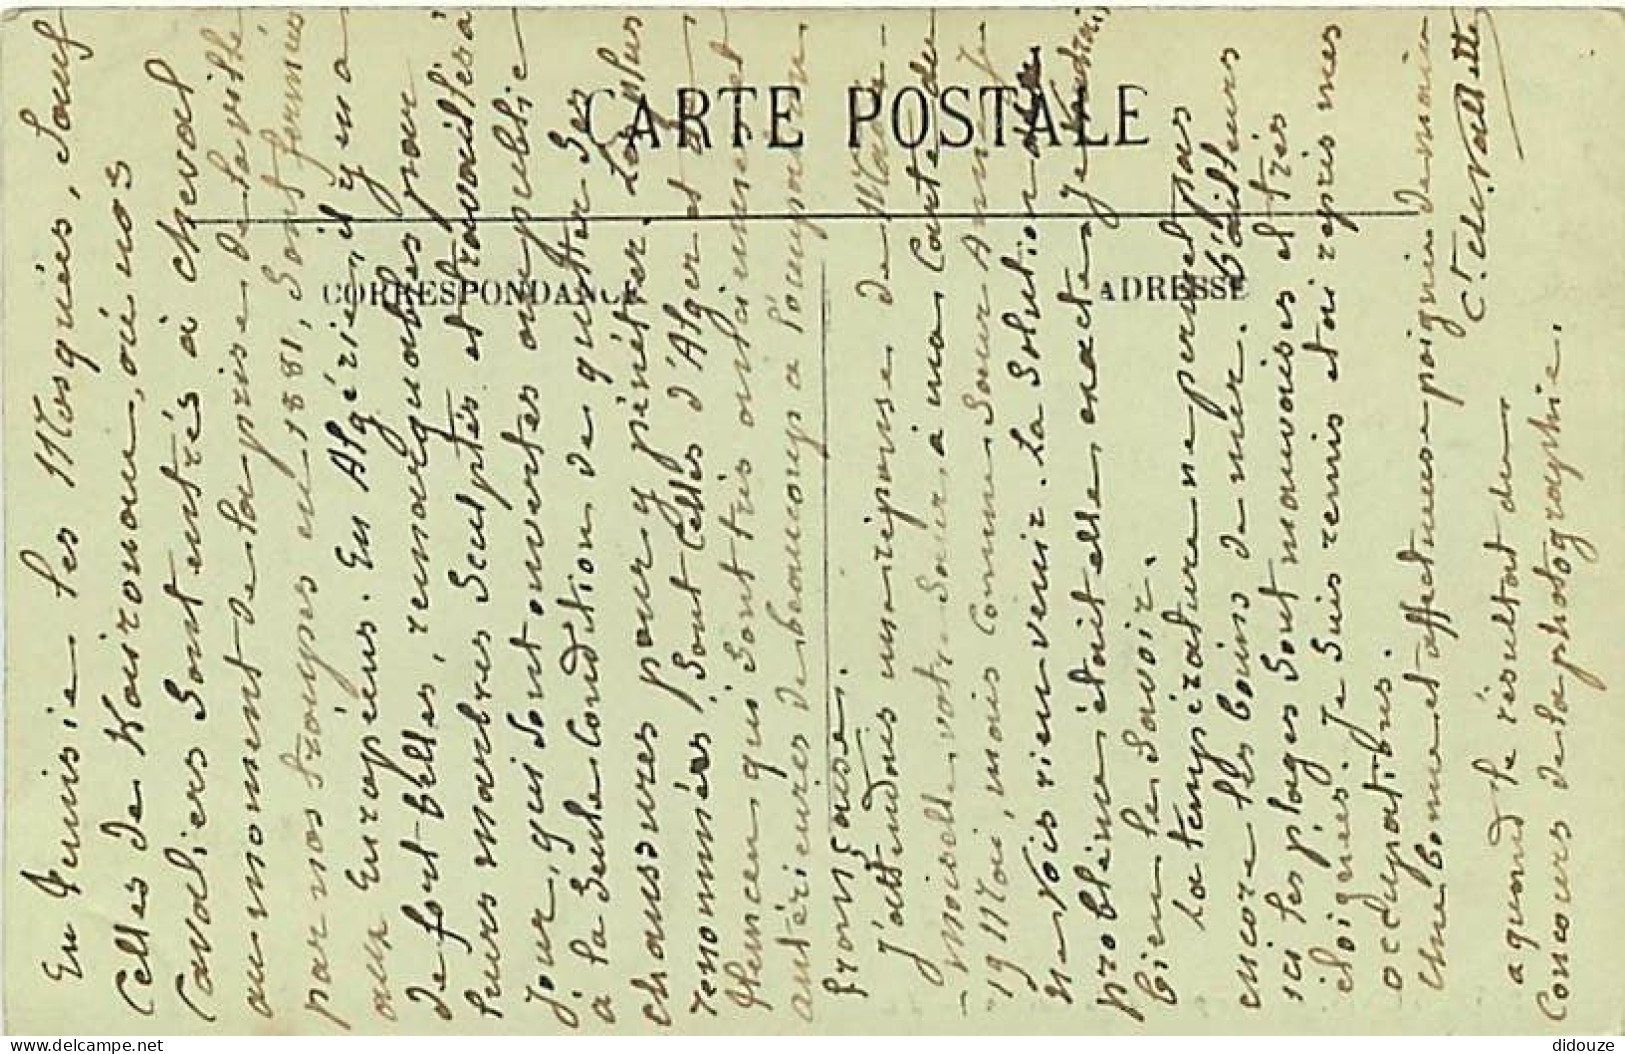 CARTE POSTALE
CORRESPONDANCE
ADRESSE
En Tunisie les Mosquées, Sauf
Celles de Kairouan, où nos
Cavaliers Sont entrés à cheval
au moment de la prise de la ville
par nos troupes en 1881, Sont fermées
aux Européens. En Algérie, il y en a
de fort belles, remarquables par
leurs marbres Sculptés et travaillés à
jour, qui Sont ouvertes au public
à la Seule Condition de quitter Ses
chaussures pour y pénétrer. Les plus
renommées Sont Celles d'Alger et de
Tlemcen qui Sont très anciennes et
antérieures de beaucoup à l'occupation
française.
J'attendais une réponse de Made-
-moiselle votre Sœur, à ma Carte du
19 Mai, mais Comme Sœur Anne je
ne Vois rien venir. La Solution du
problème était elle exacte, je voudrais
bien le Savoir.
La température ne permet pas
encore les bains de mer. D'ailleurs
ici les plages Sont mauvaises et très
éloignées. Je Suis remis et ai repris mes
occupations.
Une bonne et affectueuse poignée de main
Ct.
a quand le résultat du
Concours de la photographie.
didouze
delcampe.net